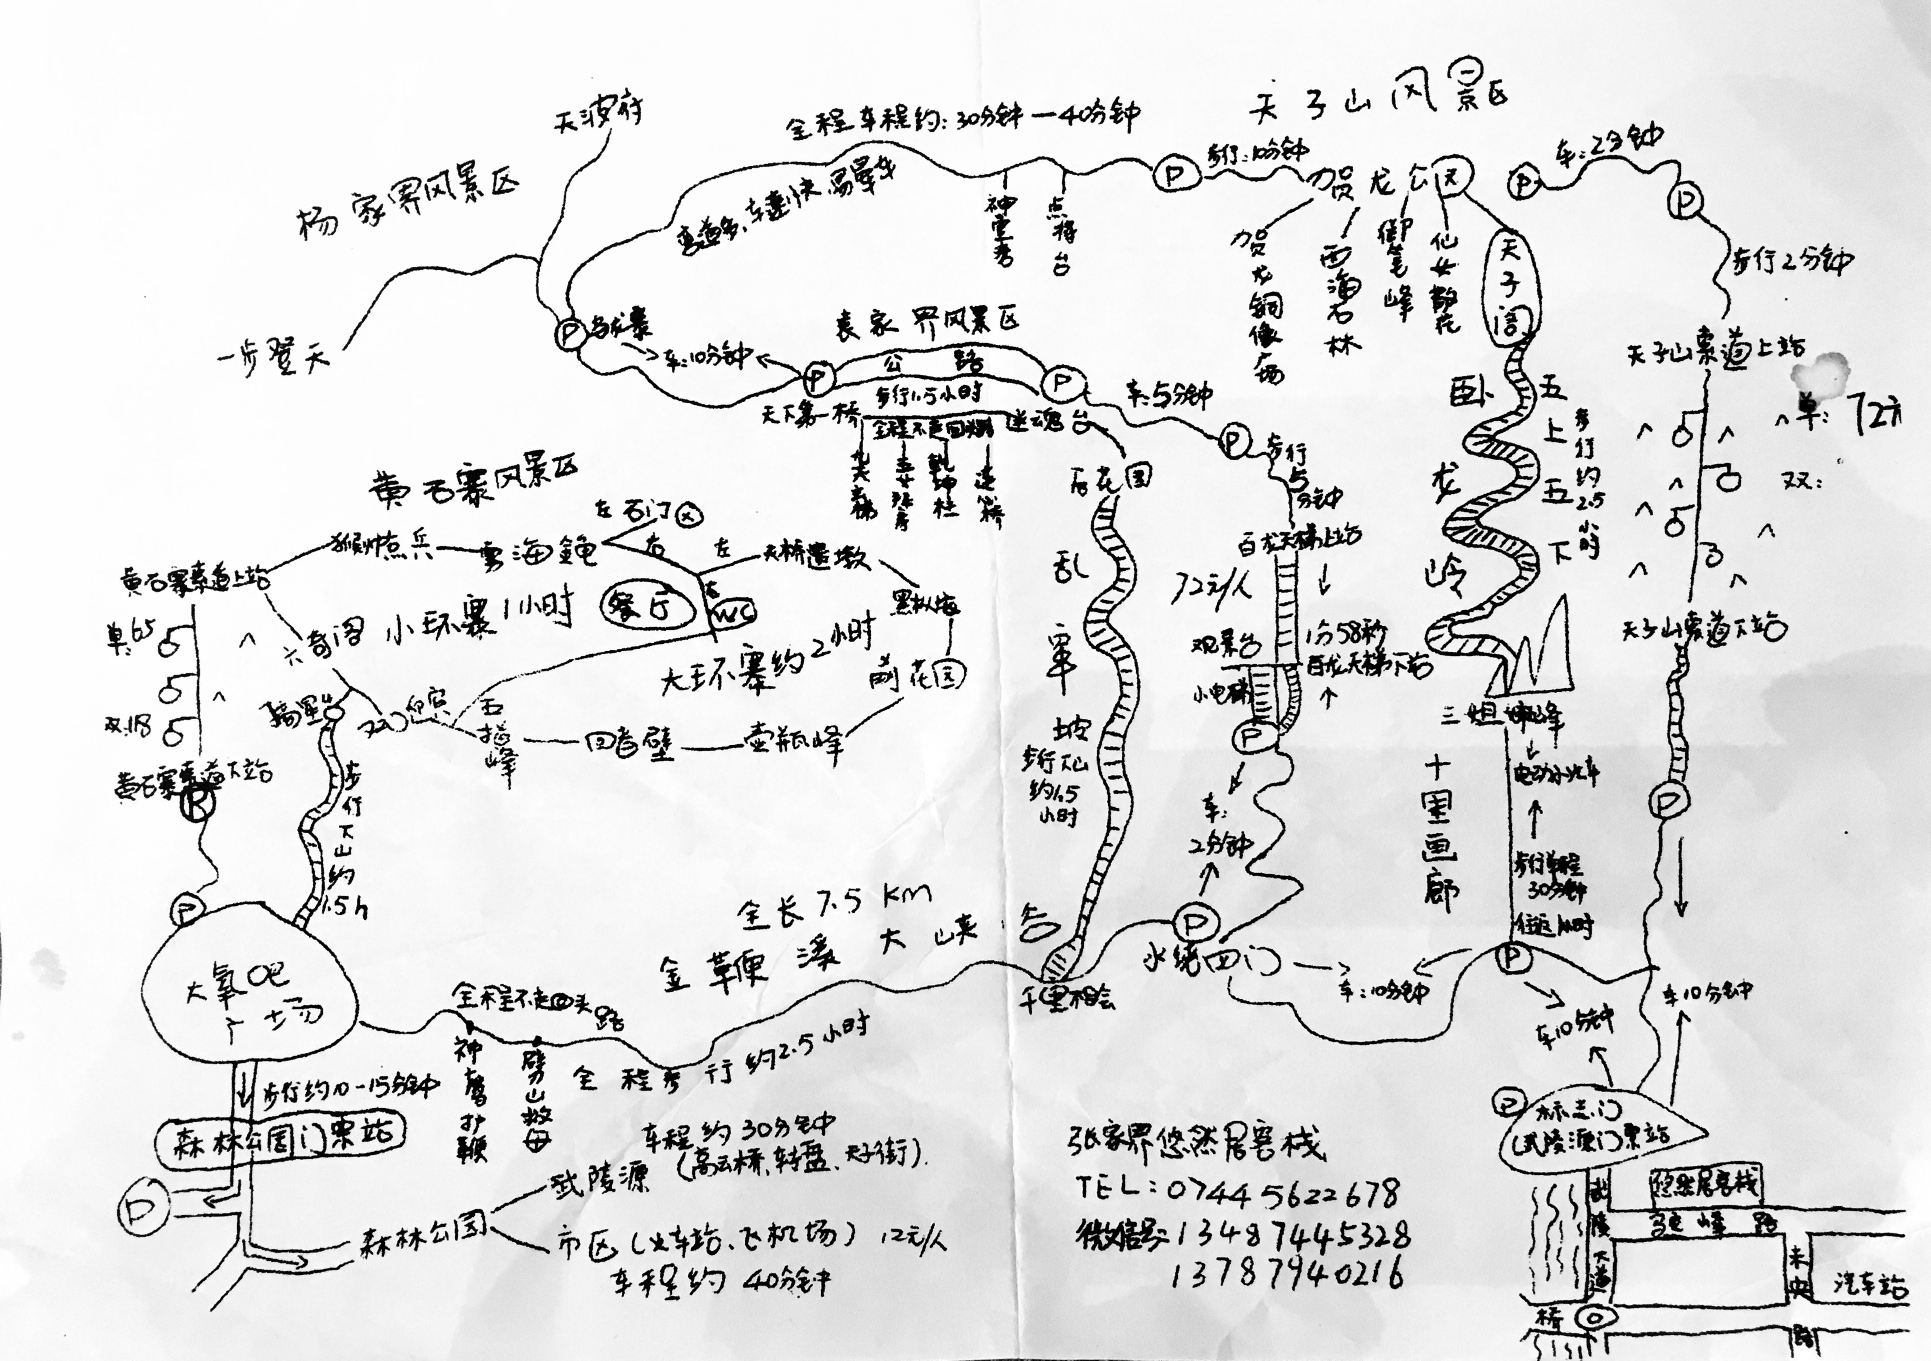 天子山风景区
天波府
全程车程约:30分钟—40分钟
杨家界风景区
弯道多,车速快易晕车
步行:10分钟
贺龙公园
车:2分钟
神堂湾
点将台
贺龙铜像广场
西海石林
御笔峰
仙女散花
天子阁
步行2分钟
一步登天
乌龙寨
车:10分钟
袁家界风景区
公路
步行1.5小时
天下第一桥
全程不走回头路
迷魂台
车:5分钟
天子山索道上站
单:72元
双:
卧龙岭
五上五下
步行约2.5小时
后花园
步行5分钟
黄石寨风景区
左
石门
右
左
天桥遗墩
猴帅点兵
雾海金龟
黄石寨索道上站
单:65
双:118
六奇阁
小环寨1小时
餐厅
WC
黑枞垴
大环寨约2小时
前花园
摘星台
双门迎宾
五指峰
回音壁
壶瓶峰
黄石寨索道下站
步行下山约1.5h
乱窜坡
步行下山约1.5小时
百龙天梯上站
72元/人
观景台
1分58秒
百龙天梯下站
小电梯
天子山索道下站
三姐妹峰
电动小火车
十里画廊
步行单程30分钟
往返1小时
车:2分钟
水绕四门
车:10分钟
车10分钟
车10分钟
全长7.5Km
金鞭溪大峡谷
千里相会
大氧吧广场
全程不走回头路
神鹰护鞭
劈山救母
全程步行约2.5小时
步行约10-15分钟
森林公园门票站
森林公园
武陵源
车程约30分钟
(高云桥、转盘、天子街).
市区(火车站、飞机场) 12元/人
车程约40分钟
张家界悠然居客栈
TEL:0744 5622678
微信号:13487445328
13787940216
标志门
(武陵源门票站)
悠然居客栈
武陵大道
峰路
未央路
汽车站
桥